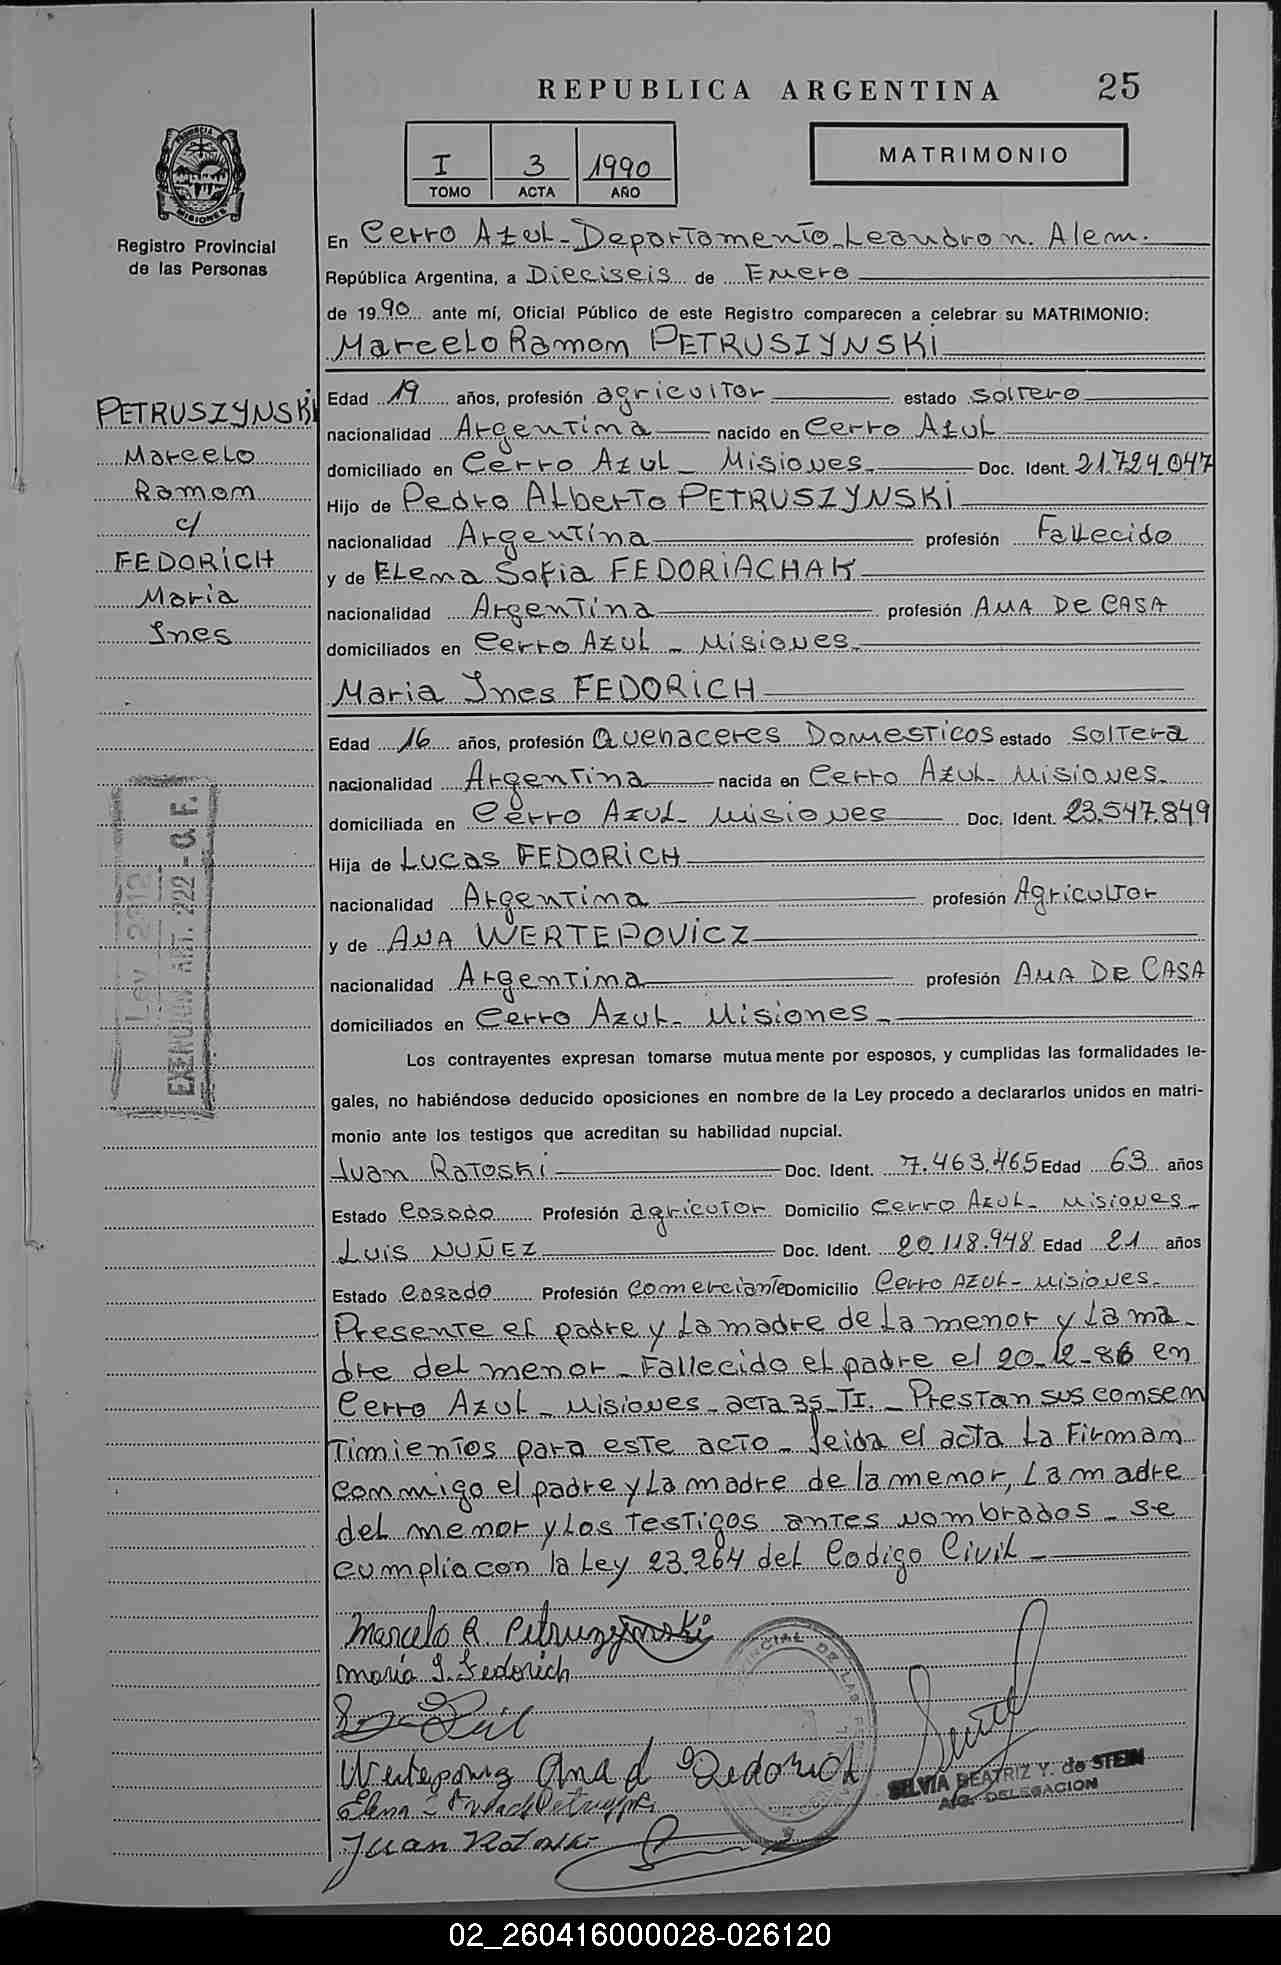 REPUBLICA ARGENTINA 25
I 3 1990
TOMO ACTA AÑO
MATRIMONIO
PROVINCIA DE
MISIONES
Registro Provincial
de las Personas
PETRUSZYNSKI
Marcelo
Ramon
c/
FEDORICH
Maria
Ines
Ley 2312
EXENCION ART. 222 - C. F.
En Cerro Azul - Departamento Leandro N. Alem.
República Argentina, a Dieciseis de Enero
de 1990 ante mí, Oficial Público de este Registro comparecen a celebrar su MATRIMONIO:
Marcelo Ramon PETRUSZYNSKI
Edad 19 años, profesión agricultor estado soltero
nacionalidad Argentina nacido en Cerro Azul
domiciliado en Cerro Azul - Misiones. Doc. Ident. 21.724.047
Hijo de Pedro Alberto PETRUSZYNSKI
nacionalidad Argentina profesión Fallecido
y de Elena Sofia FEDORIACHAK
nacionalidad Argentina profesión AMA De CASA
domiciliados en Cerro Azul - Misiones.
Maria Ines FEDORICH
Edad 16 años, profesión Quehaceres Domesticos estado soltera
nacionalidad Argentina nacida en Cerro Azul - Misiones.
domiciliada en Cerro Azul - Misiones Doc. Ident. 23.547.849
Hija de Lucas FEDORICH
nacionalidad Argentina profesión Agricultor
y de ANA WERTEPOVICZ
nacionalidad Argentina profesión AMA DE CASA
domiciliados en Cerro Azul - Misiones -
Los contrayentes expresan tomarse mutuamente por esposos, y cumplidas las formalidades le-
gales, no habiéndose deducido oposiciones en nombre de la Ley procedo a declararlos unidos en matri-
monio ante los testigos que acreditan su habilidad nupcial.
Juan Ratoski Doc. Ident. 7.463.465 Edad 63 años
Estado Casado Profesión agricutor Domicilio Cerro Azul - Misiones -
Luis NUÑEZ Doc. Ident. 20.118.948 Edad 21 años
Estado Casado Profesión Comerciante Domicilio Cerro Azul - Misiones -
Presente el padre y la madre de la menor y la ma-
dre del menor - Fallecido el padre el 20-12-86 en
Cerro Azul - Misiones - acta 35 - TI. - Prestan sus consen
timientos para este acto - leida el acta la Firman
conmigo el padre y la madre de la menor, la madre
del menor y los testigos antes nombrados - se
cumplia con la ley 23.264 del Codigo Civil -
Marcelo R. Petruszynski
Maria I. Fedorich
Ana d Fedorich
Juan Ratoski
SILVIA BEATRIZ Y. de STEIN
A/C. DELEGACION
02_260416000028-026120